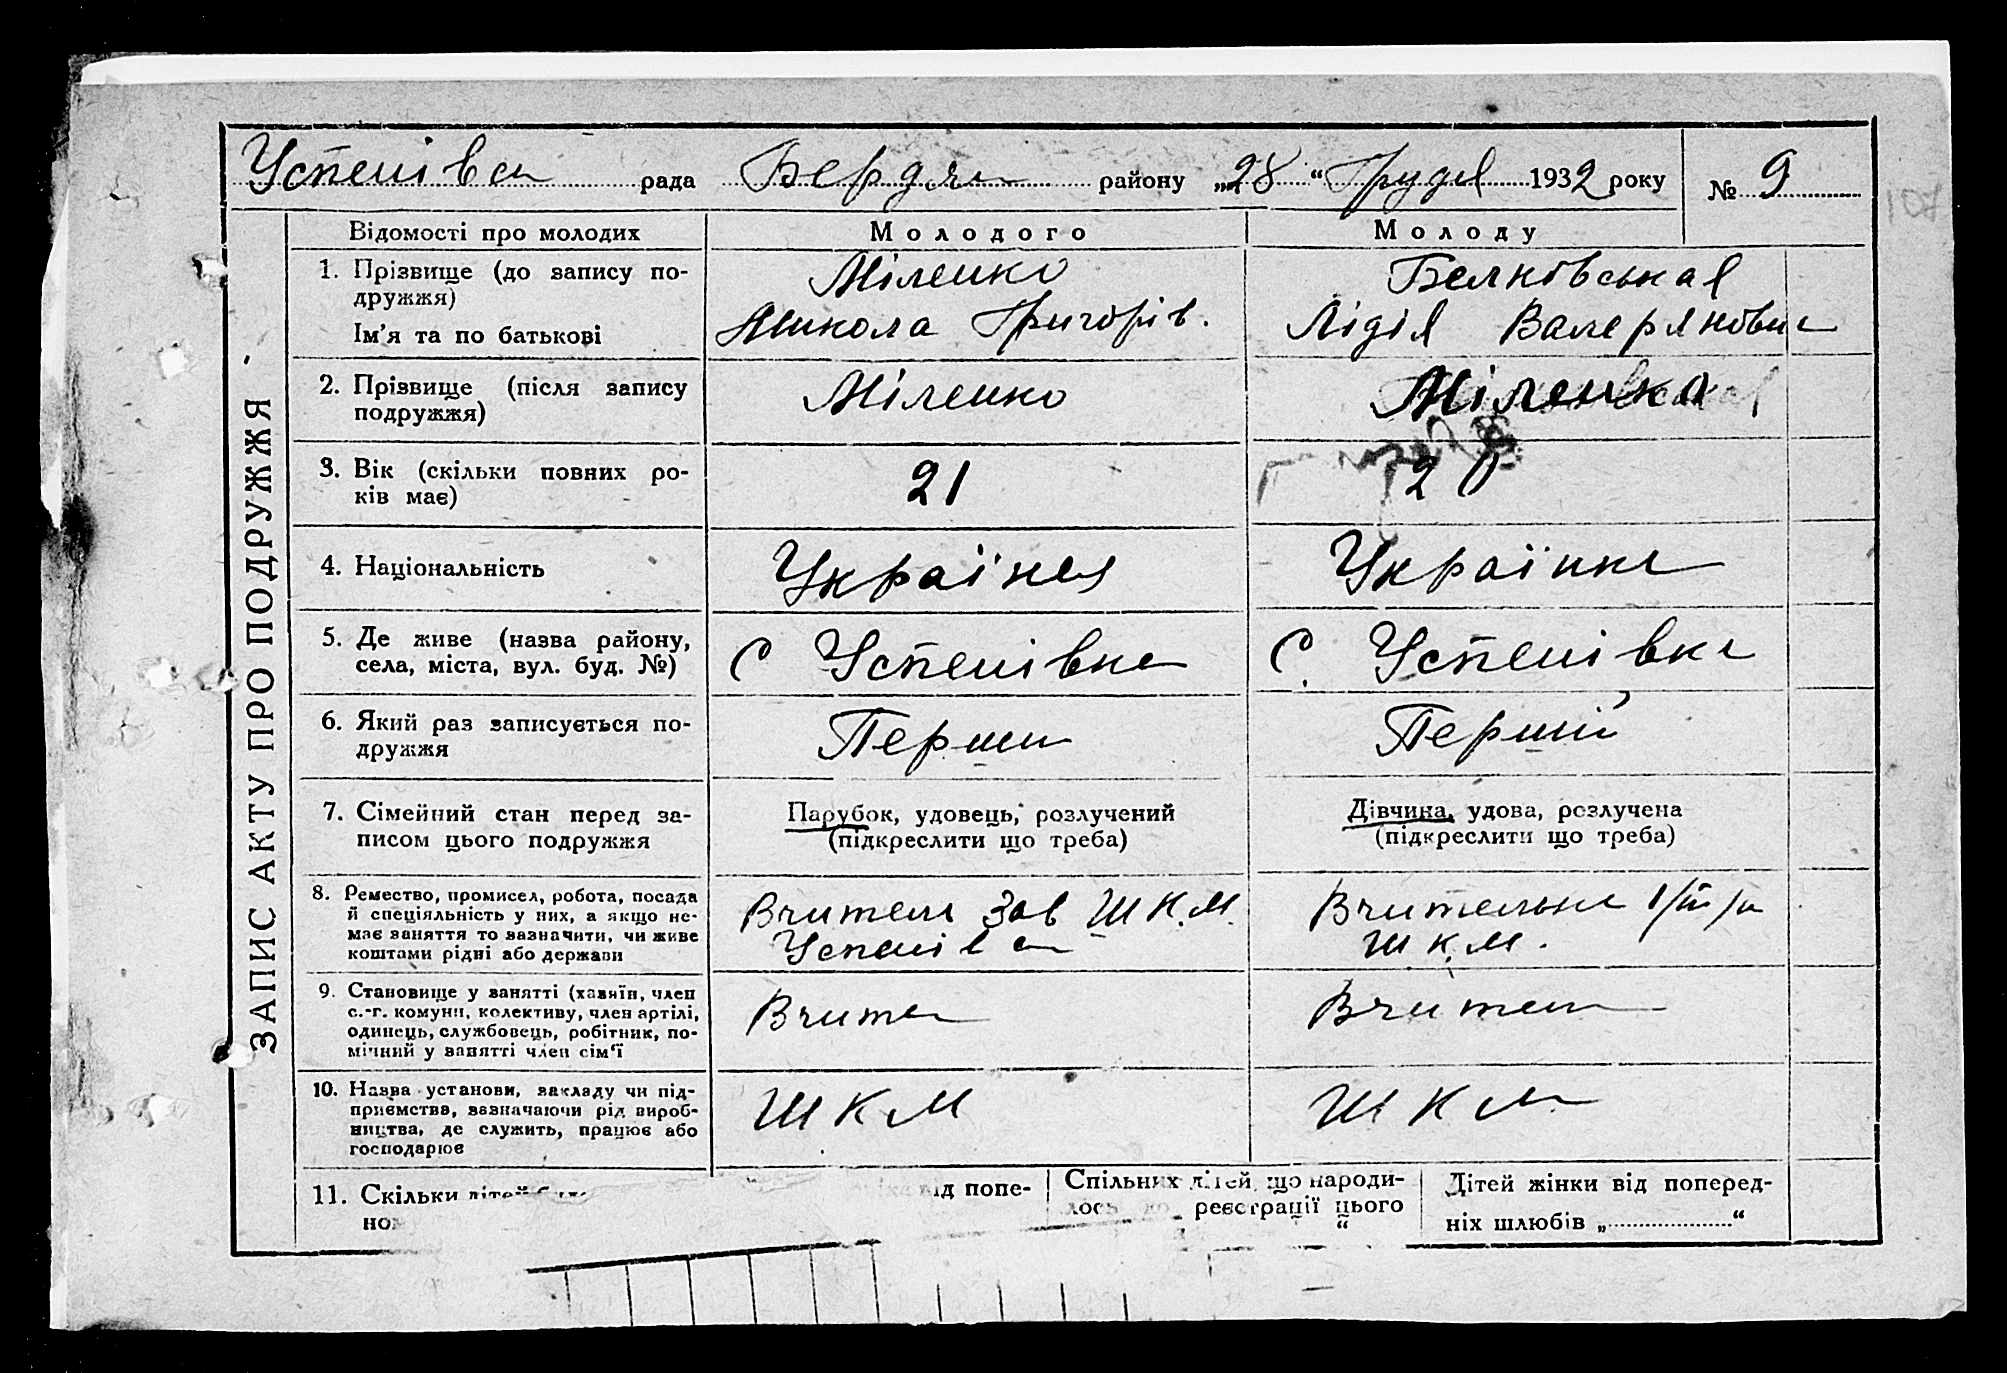 Успенівса рада Бердян району „28“ Грудя 1932 року № 9
107
ЗАПИС АКТУ ПРО ПОДРУЖЖЯ
Відомості про молодих Молодого Молоду
1. Прізвище (до запису по-
дружжя)
Міленко Белковськая
Ім'я та по батькові Микола Григорів. Лідія Валеряновна
2. Прізвище (після запису
подружжя)
Міленко Міленко
3. Вік (скільки повних ро-
ків має)
21
4. Національність Україн Українка
5. Де живе (назва району,
села, міста, вул. буд. №)
С Успенівка С. Успенівка
6. Який раз записується по-
дружжя
Перши Перший
7. Сімейний стан перед за-
писом цього подружжя
Парубок, удовець, розлучений
(підкреслити що треба)
Дівчина, удова, розлучена
(підкреслити що треба)
8. Ремество, промисел, робота, посада
й спеціяльність у них, а якщо не-
має заняття то зазначити, чи живе
коштами рідні або держави
Вчитель Зав ШК.М.
Успенівса
Вчителька
ШК.М.
9. Становище у занятті (хазяїн, член
с.-г. комуни, колективу, член артілі,
одинець, службовець, робітник, по-
мічний у занятті член сім'ї
Вчите Вчител
10. Назва установи, закладу чи під-
приємства, зазначаючи рід вироб-
ництва, де служить, працює або
господарює
ШКМ ШКМ
11. Скільки дітей
від попе-
Спільних дітей, що народи-
лось до реєстрації цього
“
Дітей жінки від поперед-
ніх шлюбів „ “